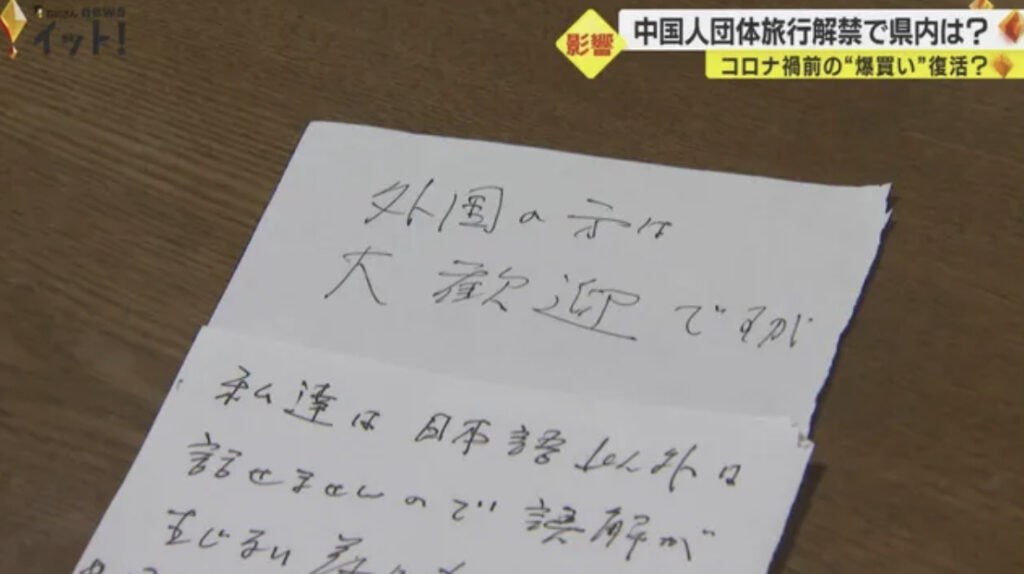 イット!
影響
中国人団体旅行解禁で県内は?
コロナ禍前の“爆買い”復活?
外国の示は
大歓迎ですが
私達は日本語以外は
話せませんので誤解が
生じない様